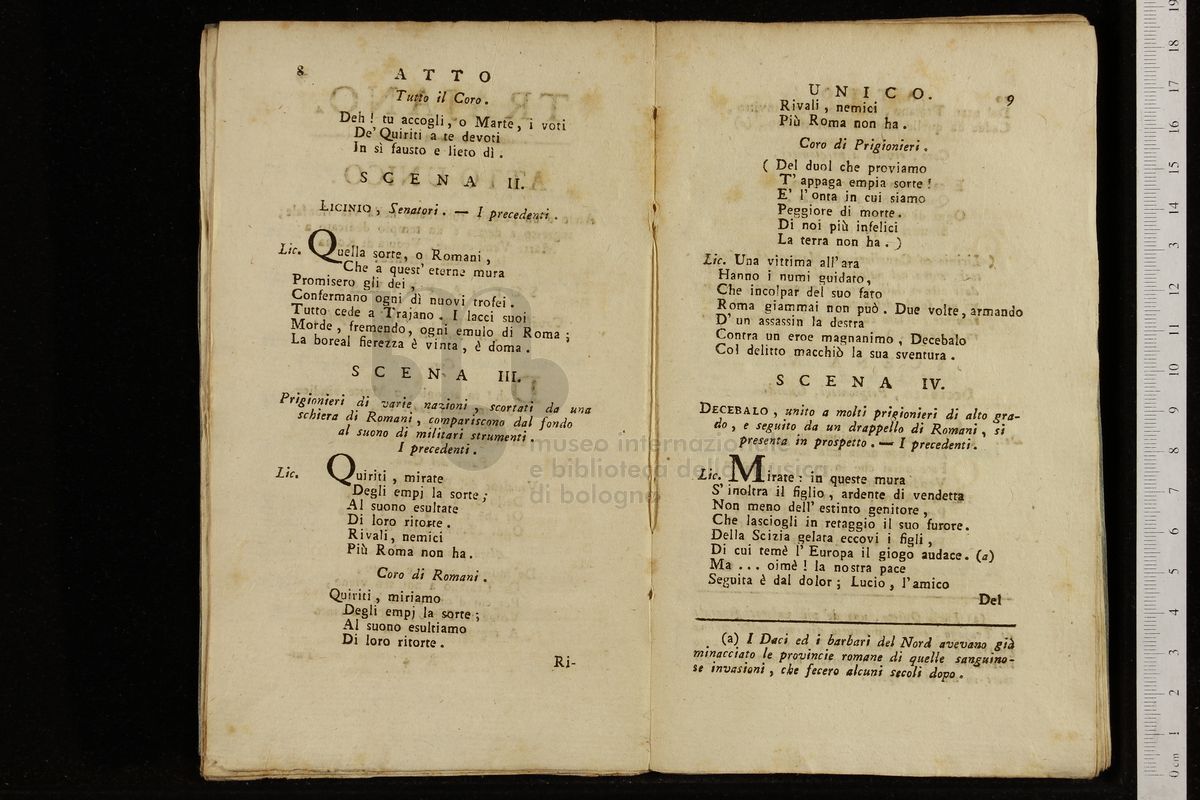 8
ATTO
Tutto il Coro.
Deh! tu accogli, o Marte, i voti
De' Quiriti a te devoti
In sì fausto e lieto dì.
SCENA II.
LICINIO, Senatori. — I precedenti.
Lic. Quella sorte, o Romani,
Che a quest' eterne mura
Promisero gli dei,
Confermano ogni dì nuovi trofei.
Tutto cede a Trajano. I lacci suoi
Morde, fremendo, ogni emulo di Roma;
La boreal fierezza è vinta, è doma.
SCENA III.
Prigionieri di varie nazioni, scortati da una
schiera di Romani, compariscono dal fondo
al suono di militari strumenti.
I precedenti.
Lic. Quiriti, mirate
Degli empj la sorte;
Al suono esultate
Di loro ritorte.
Rivali, nemici
Più Roma non ha.
Coro di Romani.
Quiriti, miriamo
Degli empj la sorte;
Al suono esultiamo
Di loro ritorte.
Ri-
UNICO.
9
Rivali, nemici
Più Roma non ha.
Coro di Prigionieri.
( Del duol che proviamo
T' appaga empia sorte!
E' l' onta in cui siamo
Peggiore di morte.
Di noi più infelici
La terra non ha. )
Lic. Una vittima all' ara
Hanno i numi guidato,
Che incolpar del suo fato
Roma giammai non può. Due volte, armando
D' un assassin la destra
Contra un eroe magnanimo, Decebalo
Col delitto macchiò la sua sventura.
SCENA IV.
DECEBALO, unito a molti prigionieri di alto gra-
do, e seguito da un drappello di Romani, si
presenta in prospetto. — I precedenti.
Lic. Mirate: in queste mura
S' inoltra il figlio, ardente di vendetta
Non meno dell' estinto genitore,
Che lasciogli in retaggio il suo furore.
Della Scizia gelata eccovi i figli,
Di cui temè l' Europa il giogo audace. (a)
Ma ... oimè! la nostra pace
Seguita è dal dolor; Lucio, l' amico
Del
(a) I Daci ed i barbari del Nord avevano già
minacciato le provincie romane di quelle sanguino-
se invasioni, che fecero alcuni secoli dopo.
museo internazionale
e biblioteca della musica
di bologna
0 cm 1 2 3 4 5 6 7 8 9 10 11 12 13 14 15 16 17 18 19